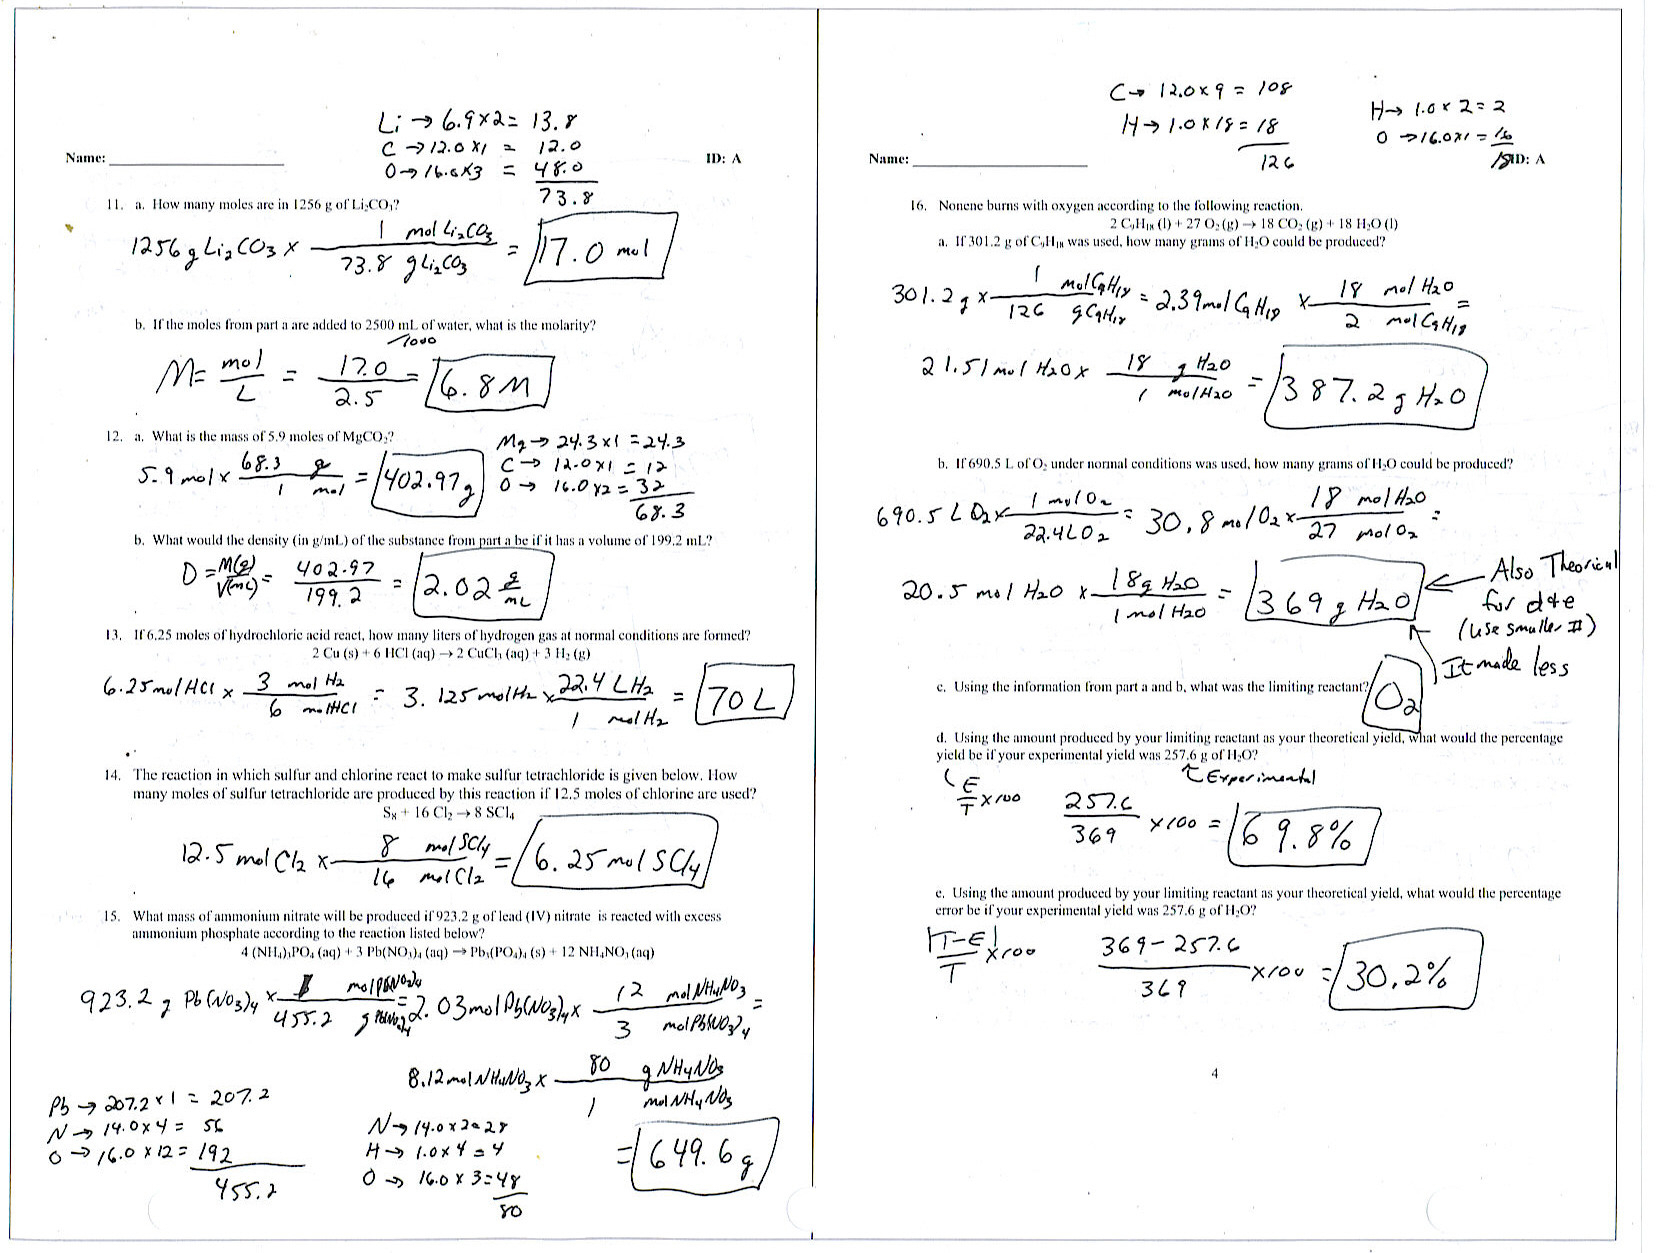 Li → 6.9×2= 13.8
C → 12.0 ×1 = 12.0
O → 16.0×3 = 48.0
73.8
Name: ID: A
11. a. How many moles are in 1256 g of Li₂CO₃?
1256 g Li₂CO₃ × 1 mol Li₂CO₃ / 73.8 g Li₂CO₃ = 17.0 mol
b. If the moles from part a are added to 2500 mL of water, what is the molarity?
/1000
M = mol / L = 17.0 / 2.5 = 6.8 M
12. a. What is the mass of 5.9 moles of MgCO₂?
Mg → 24.3×1 = 24.3
C → 12.0×1 = 12
O → 16.0×2 = 32
68.3
5.9 mol × 68.3 g / 1 mol = 402.97 g
b. What would the density (in g/mL) of the substance from part a be if it has a volume of 199.2 mL?
D = M(g) / V(mL) = 402.97 / 199.2 = 2.02 g / mL
13. If 6.25 moles of hydrochloric acid react, how many liters of hydrogen gas at normal conditions are formed?
2 Cu (s) + 6 HCl (aq) → 2 CuCl₃ (aq) + 3 H₂ (g)
6.25 mol HCl × 3 mol H₂ / 6 mol HCl = 3.125 mol H₂ × 22.4 L H₂ / 1 mol H₂ = 70 L
14. The reaction in which sulfur and chlorine react to make sulfur tetrachloride is given below. How
many moles of sulfur tetrachloride are produced by this reaction if 12.5 moles of chlorine are used?
S₈ + 16 Cl₂ → 8 SCl₄
12.5 mol Cl₂ × 8 mol SCl₄ / 16 mol Cl₂ = 6.25 mol SCl₄
15. What mass of ammonium nitrate will be produced if 923.2 g of lead (IV) nitrate is reacted with excess
ammonium phosphate according to the reaction listed below?
4 (NH₄)₃PO₄ (aq) + 3 Pb(NO₃)₄ (aq) → Pb₃(PO₄)₄ (s) + 12 NH₄NO₃ (aq)
923.2 g Pb(NO₃)₄ × 1 mol Pb(NO₃)₄ / 455.2 g Pb(NO₃)₄ = 2.03 mol Pb(NO₃)₄ × 12 mol NH₄NO₃ / 3 mol Pb(NO₃)₄ =
8.12 mol NH₄NO₃ × 80 g NH₄NO₃ / 1 mol NH₄NO₃
= 649.6 g
Pb → 207.2×1 = 207.2
N → 14.0×4 = 56
O → 16.0×12 = 192
455.2
N → 14.0×2=28
H → 1.0×4 = 4
O → 16.0×3=48
80
C → 12.0×9 = 108
H → 1.0×18 = 18
126
H → 1.0×2 = 2
O → 16.0×1 = 16
18
Name: ID: A
16. Nonene burns with oxygen according to the following reaction.
2 C₉H₁₈ (l) + 27 O₂ (g) → 18 CO₂ (g) + 18 H₂O (l)
a. If 301.2 g of C₉H₁₈ was used, how many grams of H₂O could be produced?
301.2 g × 1 mol C₉H₁₈ / 126 g C₉H₁₈ = 2.39 mol C₉H₁₈ × 18 mol H₂O / 2 mol C₉H₁₈ =
21.51 mol H₂O × 18 g H₂O / 1 mol H₂O = 387.2 g H₂O
b. If 690.5 L of O₂ under normal conditions was used, how many grams of H₂O could be produced?
690.5 L O₂ × 1 mol O₂ / 22.4 L O₂ = 30.8 mol O₂ × 18 mol H₂O / 27 mol O₂ =
20.5 mol H₂O × 18 g H₂O / 1 mol H₂O = 369 g H₂O
← Also Theorical
for d+e
(use smaller #)
It made less
c. Using the information from part a and b, what was the limiting reactant? O₂
d. Using the amount produced by your limiting reactant as your theoretical yield, what would the percentage
yield be if your experimental yield was 257.6 g of H₂O?
↑ Experimental
E / T ×100 257.6 / 369 ×100 = 69.8%
e. Using the amount produced by your limiting reactant as your theoretical yield, what would the percentage
error be if your experimental yield was 257.6 g of H₂O?
|T-E| / T ×100 369-257.6 / 369 ×100 = 30.2%
4